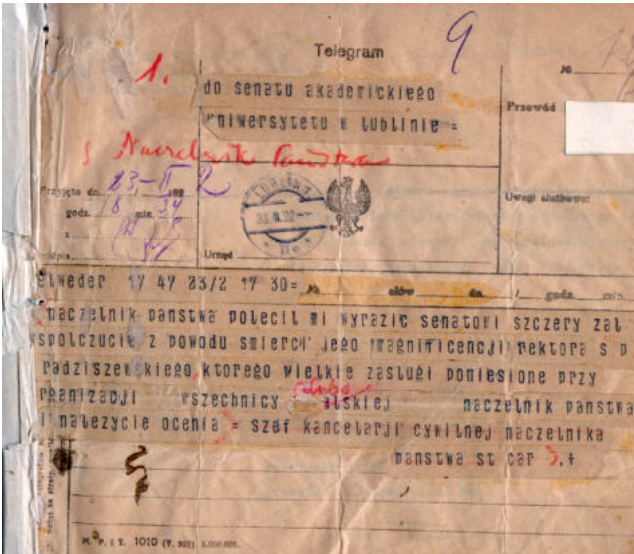 Telegram
9
1.
№
do senatu akademickiego
Przewód
uniwersytetu w lublinie =
Naczelnik Państwa
Przyjęto dn. 23-II 1922
godz. 18 min. 34
Uwagi służbowe:
z
LUBLIN 1
Urząd
elweder 17 47 23/2 17 30=
№ słów dn. / godz. min.
naczelnik panstwa polecil mi wyrazic senatowi szczery zal
wspolczucie z powodu smierci jego magnificencji rektora s p
radziszewskiego ktorego wielkie zaslugi poniesione przy
rganizacji wszechnicy lubelskiej naczelnik panstwa
i nalezycie ocenia = szef kancelarji cywilnej naczelnika
panstwa st car .+
M. P. i T. 1010 (V. 922)